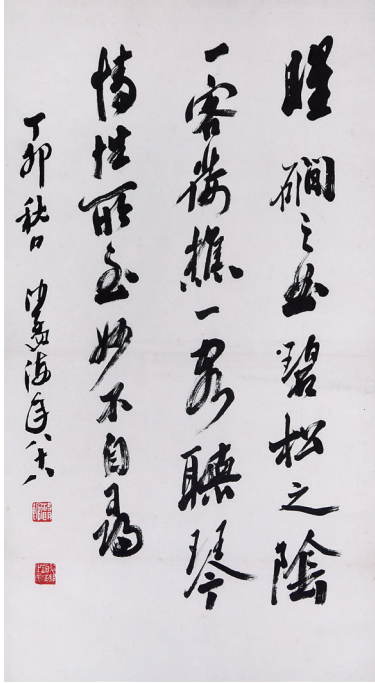 暒磵之曲碧松之陰
一客荷樵一客聽琴
情性所至妙不自尋
丁卯秋日 沙孟海年八十八